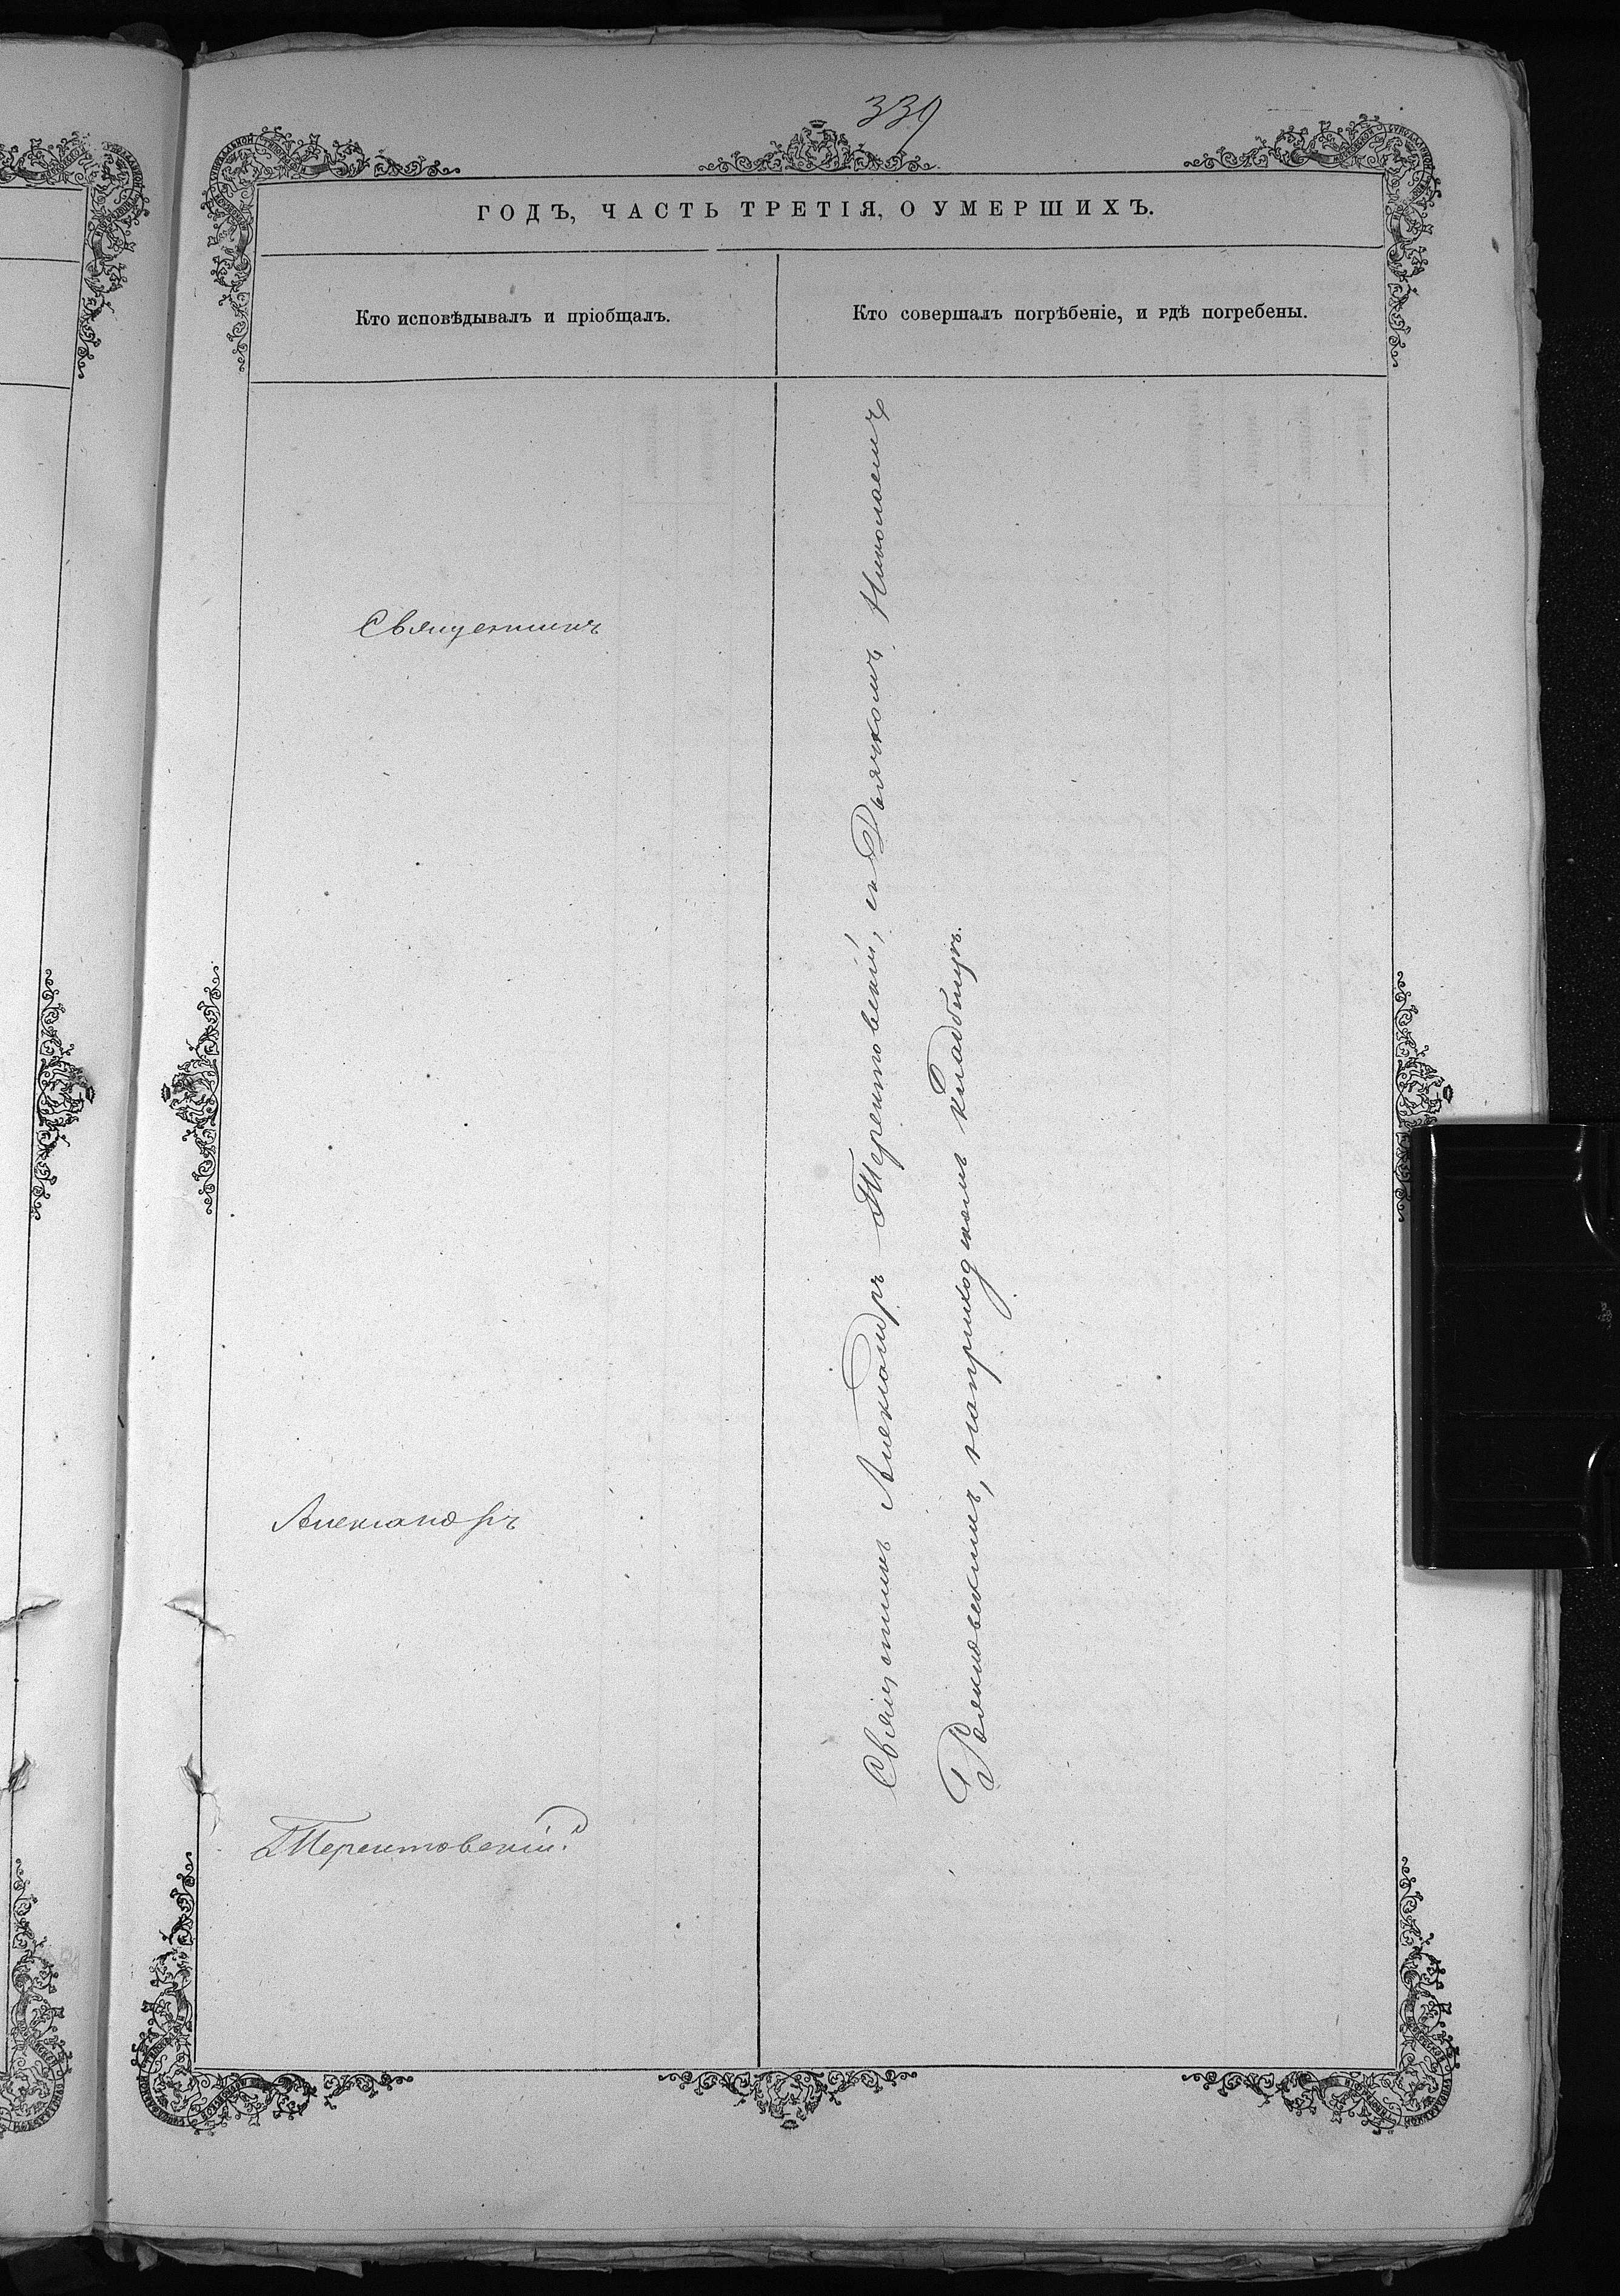 339
ГОДЪ, ЧАСТЬ ТРЕТІЯ, О УМЕРШИХЪ.
Кто исповѣдывалъ и пріобщалъ.
Кто совершалъ погрѣбеніе, и гдѣ погребены.
Священникъ
Александръ
Терентовскій
Священникъ Александръ Терентовскій, съ Дьячкомъ Николаемъ
на приходскомъ кладбищѣ.